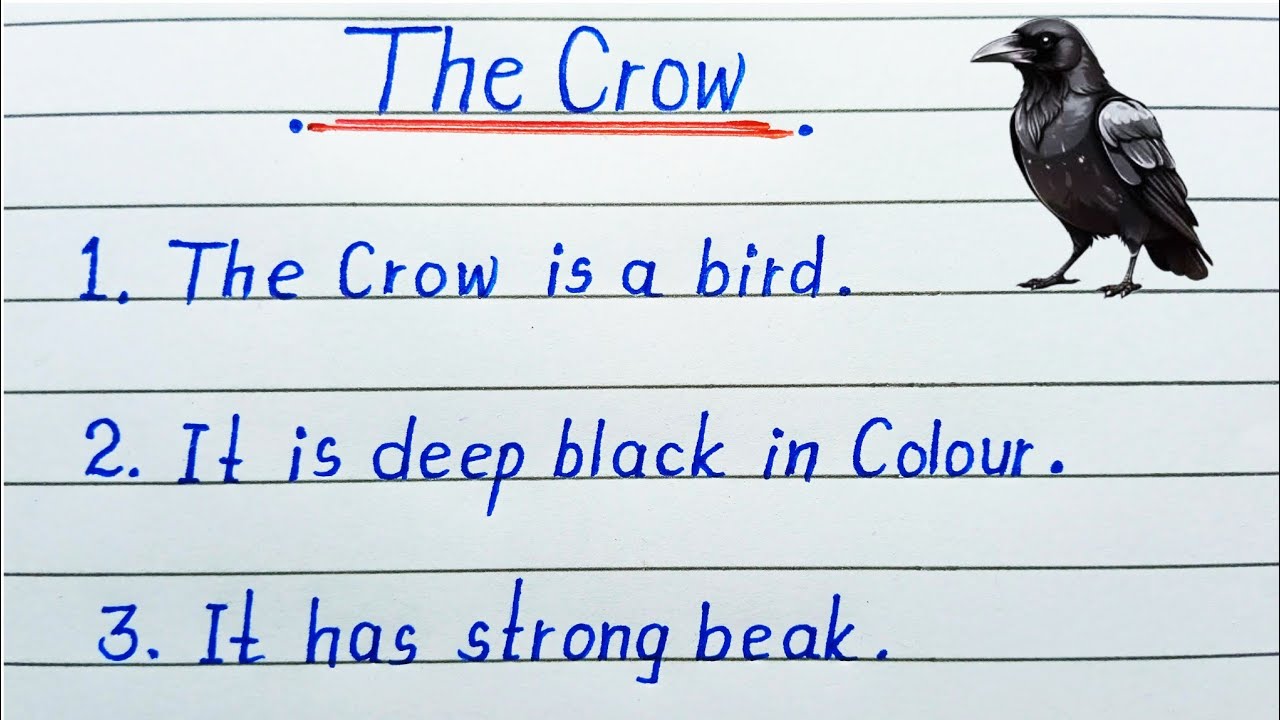 The Crow
1. The Crow is a bird.
2. It is deep black in Colour.
3. It has strong beak.